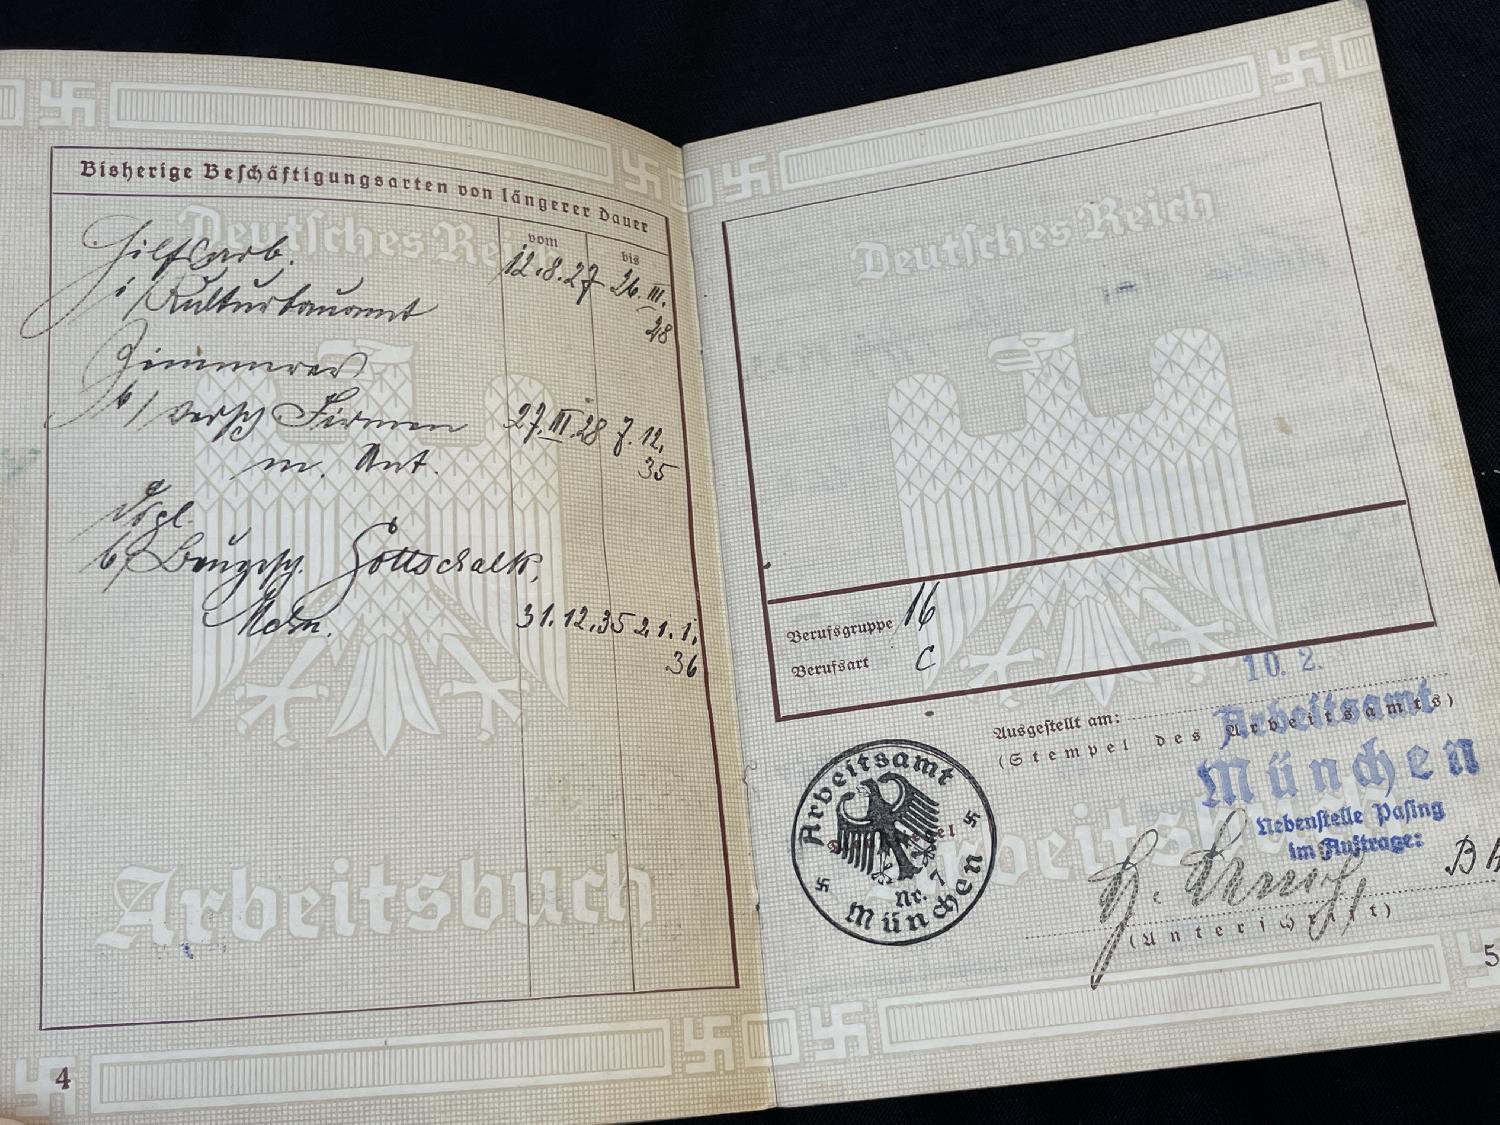 Bisherige Beschäftigungsarten von längerer Dauer
vom bis
Deutsches Reich
Hilfsarb. 12.8.27 26.III.
i/Kulturbauamt 28
Zimmerer
b/ versch Firmen 27.III.28 7.12.
m. Unt. 35
dsgl.
b/ Baugesch. Gottschalk,
31.12.35 21.1.
36
Arbeitsbuch
4
Deutsches Reich
Berufsgruppe 16
Berufsart C
10. 2.
Ausgestellt am:
(Stempel des Arbeitsamts)
Arbeitsamt
München
Nebenstelle Pasing
im Auftrage:
Arbeitsamt
Nr. 7
München
Arbeitsbuch
(Unterschrift)
5